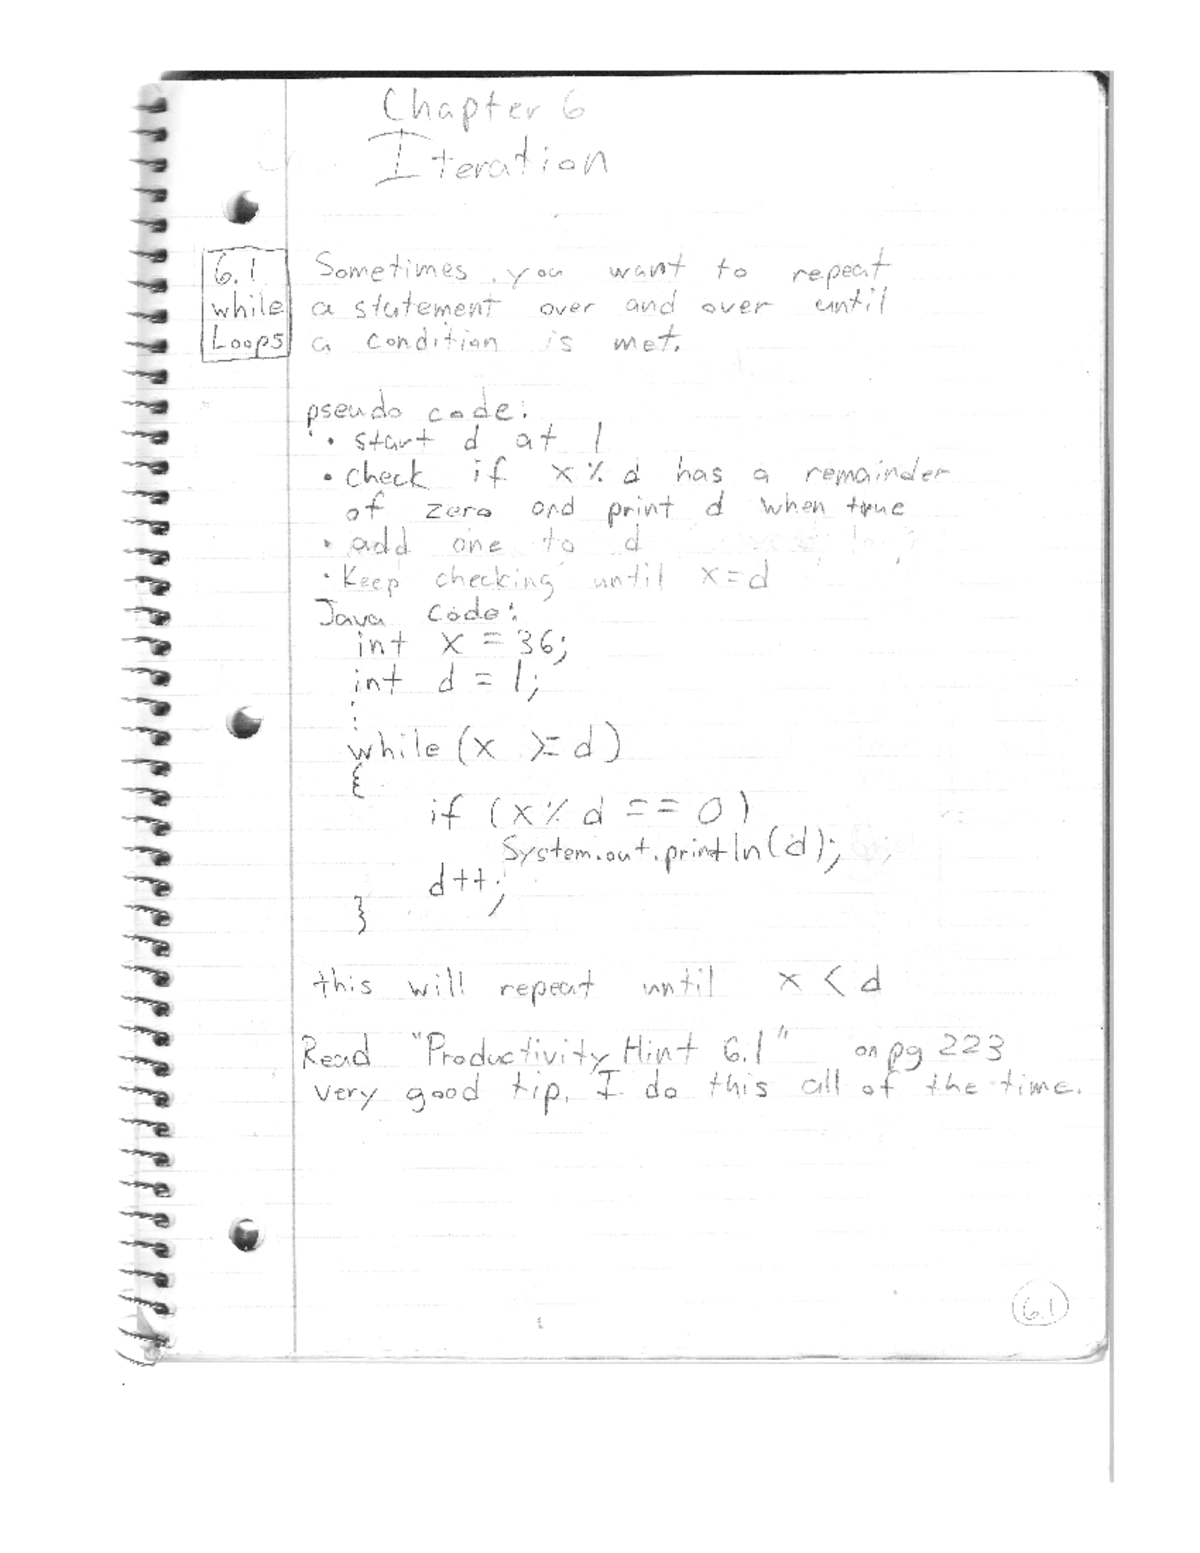 Chapter 6
Iteration
6.1
while
Loops
Sometimes you want to repeat
a statement over and over until
a condition is met.
pseudo code:
• start d at 1
• check if x % d has a remainder
of zero and print d when true
• add one to d
• Keep checking until x=d
Java code:
int x = 36;
int d = 1;
while (x >= d)
{
if (x % d == 0)
System.out.println(d);
d++;
}
this will repeat until x < d
Read "Productivity Hint 6.1" on pg 223
very good tip. I do this all of the time.
6.1